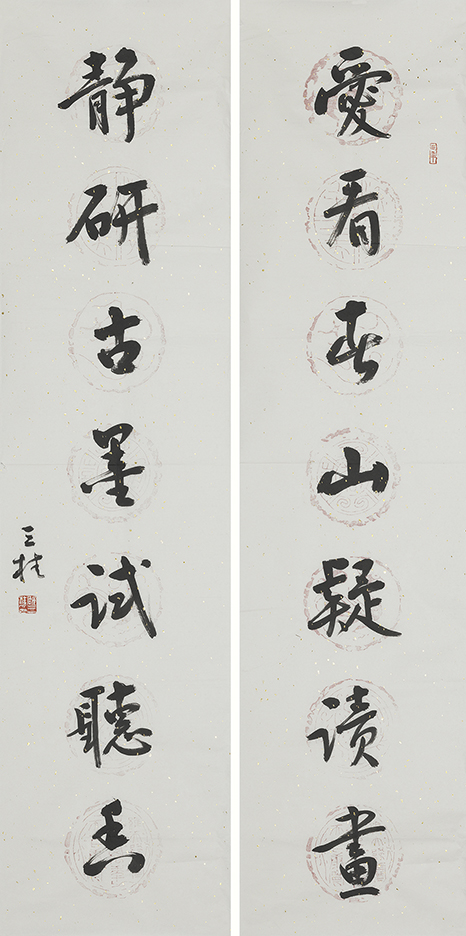 愛看春山疑讀畫
静研古墨試聽香
三柱